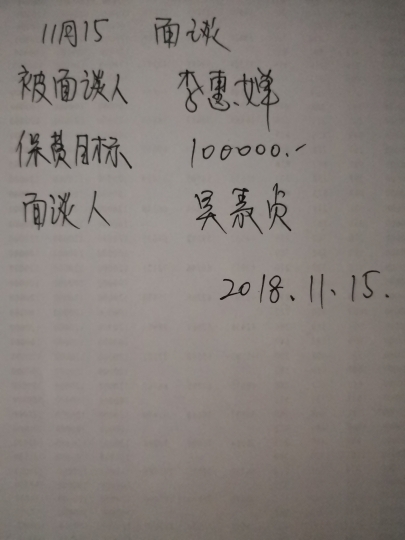 11月15 面谈
被面谈人 李惠婵
保费目标 100000.-
面谈人 吴素贞
2018.11.15.